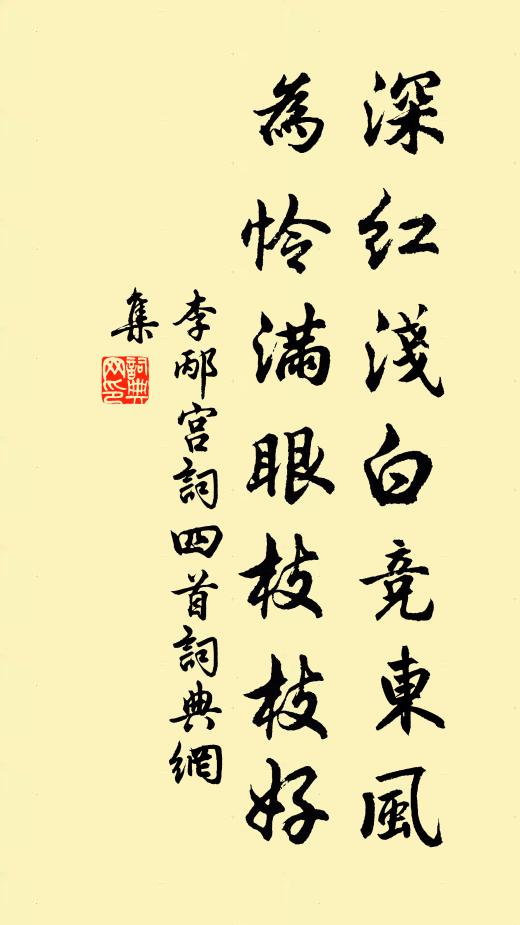 深红淺白竞東風
為怜滿眼枝枝好
李邴宫詞四首詞典網
集
詞典
网印